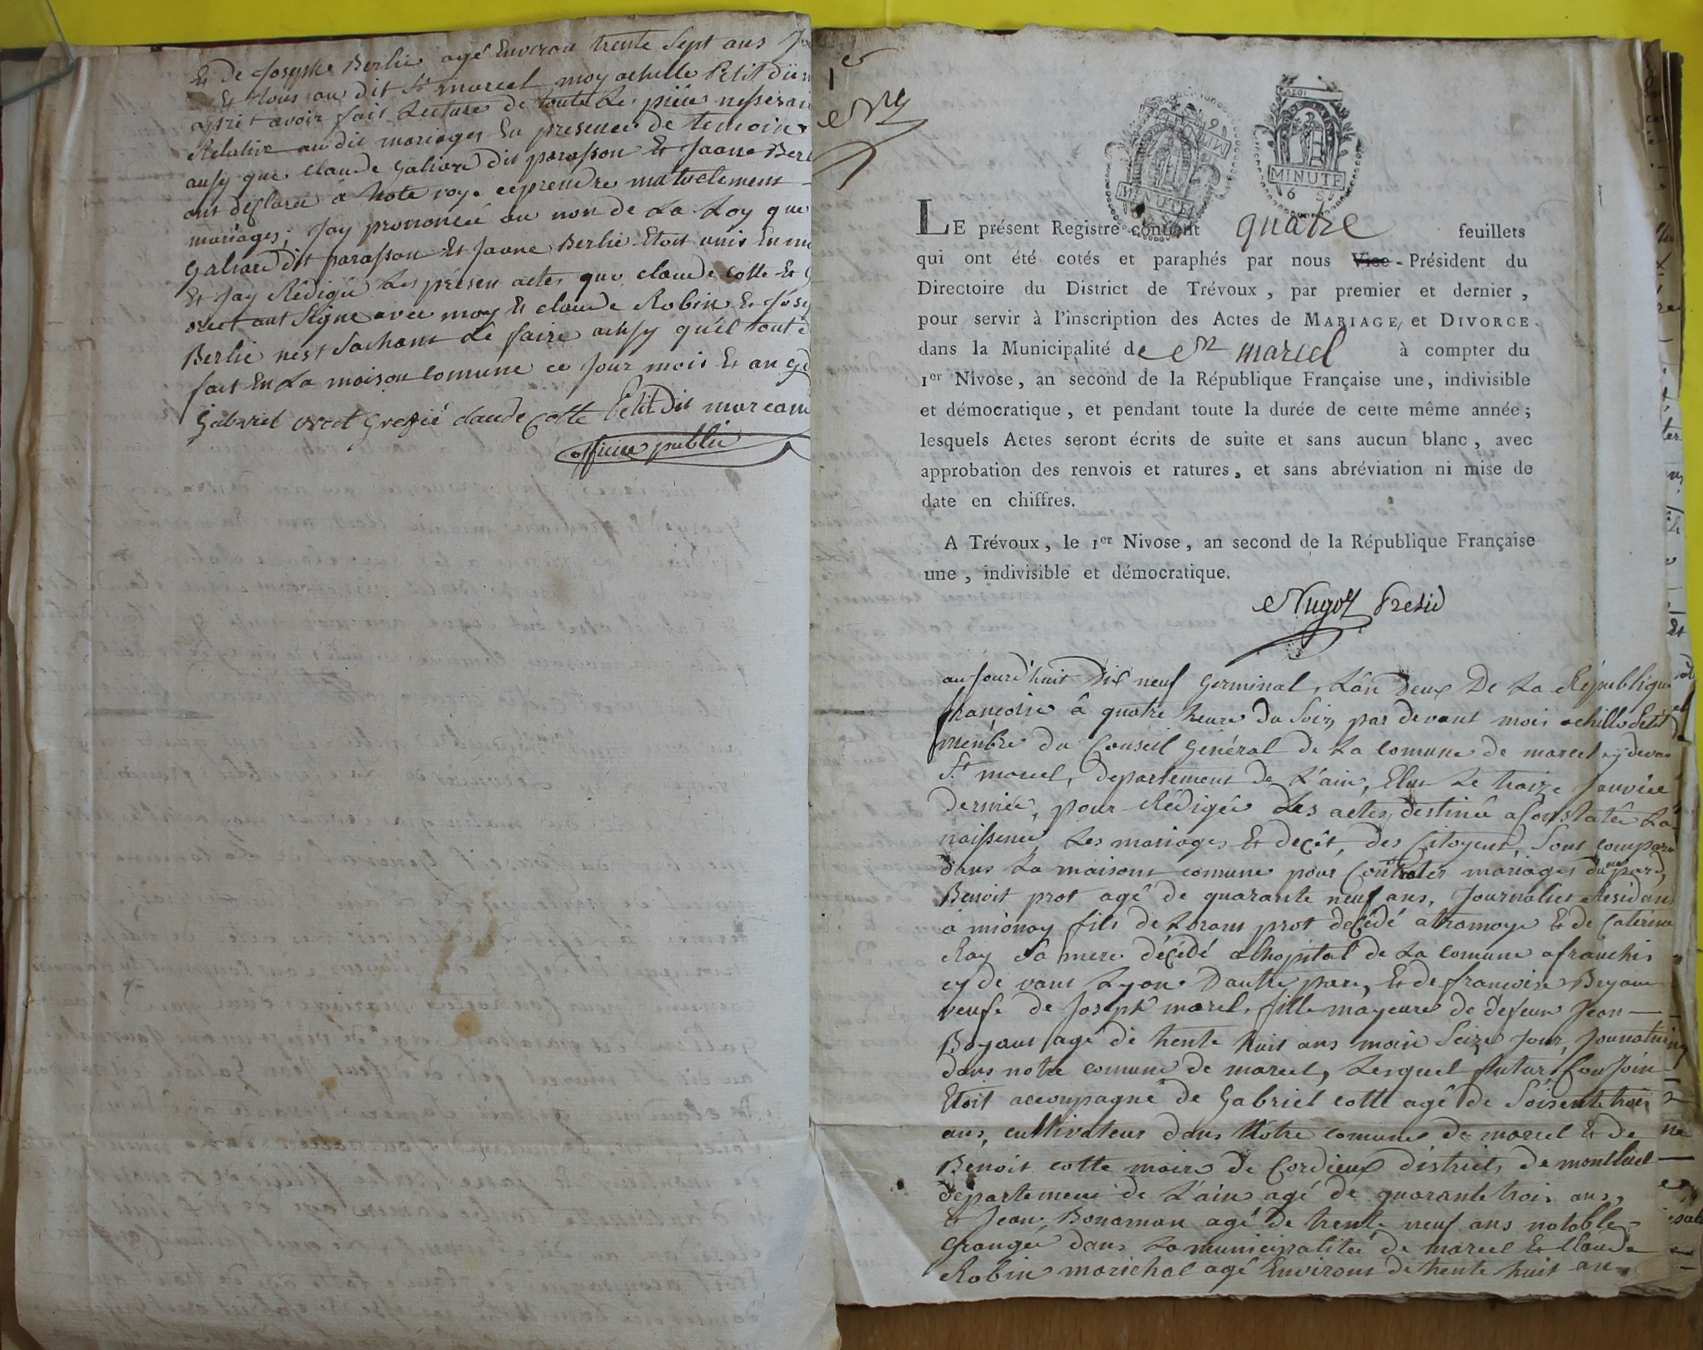 Et de Joseph Berlie agé Environ trente Sept ans
Et tous au dit St marcel moy achille Petit dit
aprèt avoir fait Lecture de toute Les pièce nesserai
Relative au dit mariages En presence de temoins
ausy que claude Galiard dit parasson Et Jaane Berl
ont déclaré à hote voye ce prendre mutuelement
mariages, Jay prononcé au non de La Loy que
Galiard dit parasson Et Jaane Berlie Etoit unis En m
Et Jay Rédigée Les présen actes que claude Cotte Et G
orset ont Signe avec moy Et claude Robin Et Jose
Berlie nest Sachant Le faire ausy quil tout
fait En La maison comune ce Jour mois Et an
Gabriel orcet Greffié claude Cotte Petit Dit marcan
officie public
1er
LE présent Registre contient quatre feuillets
qui ont été cotés et paraphés par nous Vice-Président du
Directoire du District de Trévoux, par premier et dernier,
pour servir à l'inscription des Actes de MARIAGE, et DIVORCE
dans la Municipalité de St marcel à compter du
1er Nivose, an second de la République Française une, indivisible
et démocratique, et pendant toute la durée de cette même année;
lesquels Actes seront écrits de suite et sans aucun blanc, avec
approbation des renvois et ratures, et sans abréviation ni mise de
date en chiffres.
A Trévoux, le 1er Nivose, an second de la République Française
une, indivisible et démocratique.
Presid
MINUTE
MINUTE
aujourd'huit Dix neuf Germinal, L'an Deux De La République
françoise â quatre heure du Soir, par devant mois achille Petit
menbre du Conseil Général de La Comune de marcel cy devan
St marcel, département de L'ain, Elue Le traize Janviée
Dernié, pour Rédigée Les actes, destinée a Constatée La
naissence, Les mariages Et decèt, des Citoyens, Sont compare
dans La maisons comune pour Contrates mariages dune pard,
Benoit prot agé de quarante neuf ans, Journalier Residan
a mionay fils de Lorans prot décédé a tramoye Et de Caterine
Ray Sa mere décédé a lhopital de La Comune afranchis
cy de vant Lyon. Dautre pare, Et de francoise Boyaux
veufe de Joseph morel, fille mayeure de defeun Jean
Boyaus agé de trente huit ans moin Seize Jour,
dans notre comune de marcel, Lesquel futur Conjoin
Etoit accompagné de Gabriel cotte agé de Soisente trois
ans, cultivateur dans Notre comune de marcel Et de
Benoit cotte maire de Cordieux districts de montluel
département de L'ain agé de quarante trois ans,
Et Jean Bonaman agé de trente neuf ans notable
Grangée dans La municipalitée de marcel Et Claude
Robin marichal agé Environs de trente huit an